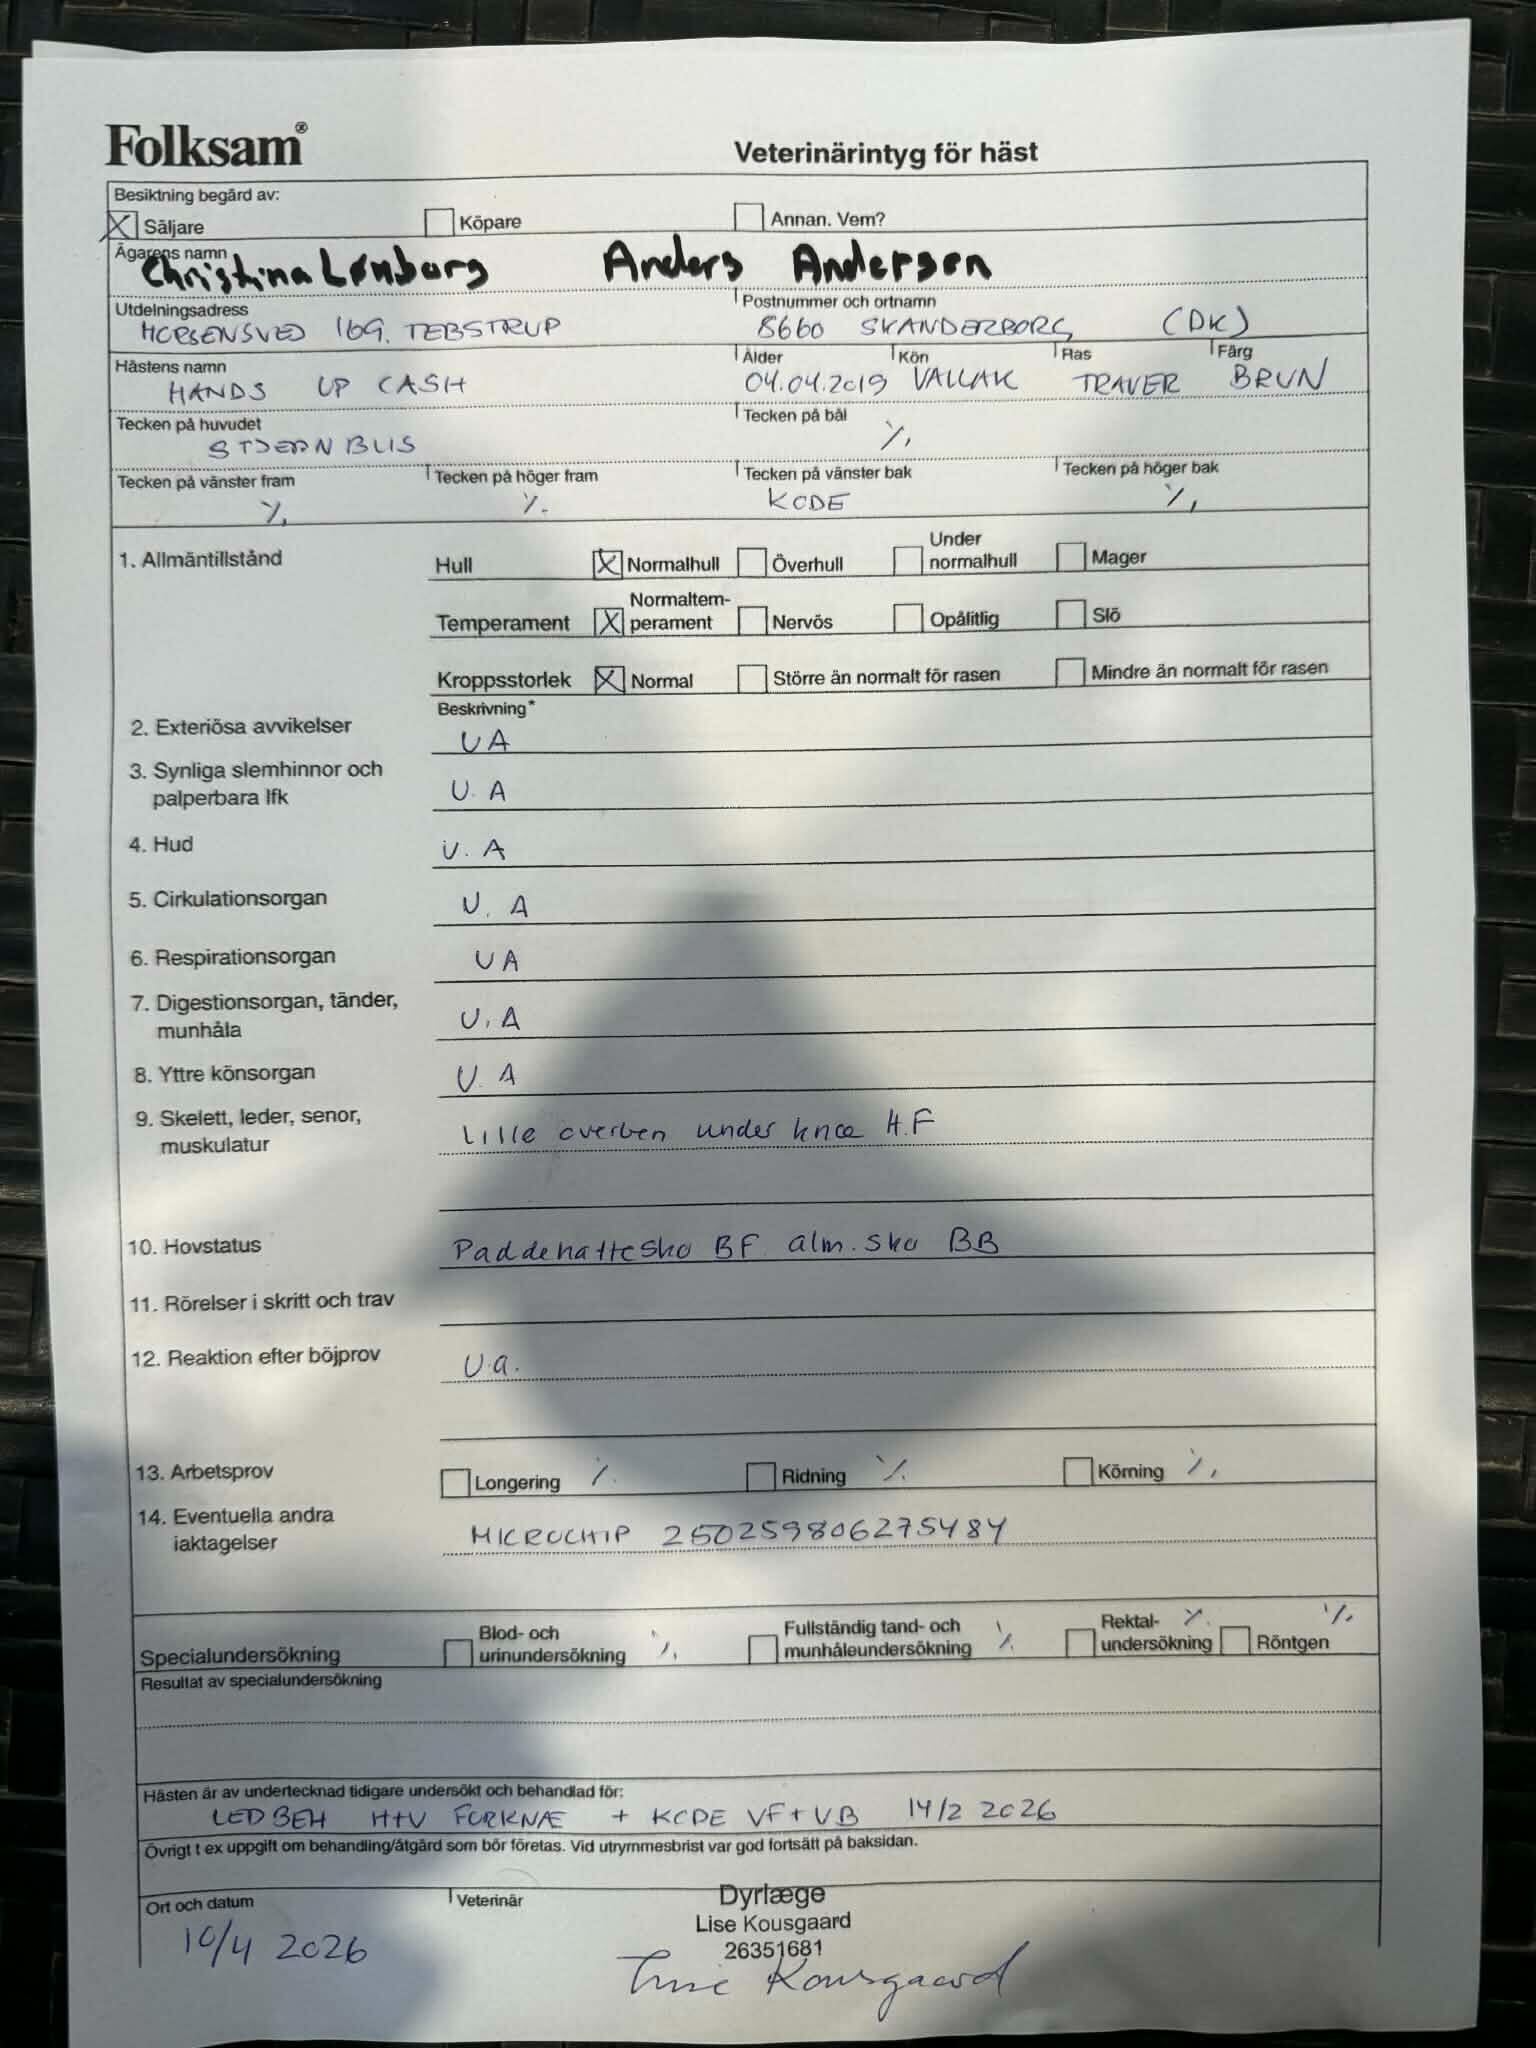 Folksam®
Veterinärintyg för häst
Besiktning begärd av:
X Säljare Köpare Annan. Vem?
Ägarens namn
Christina Lønborg Anders Andersen
Utdelningsadress Postnummer och ortnamn
HORSENSVED 169. TEBSTRUP 8660 SKANDERBORG (DK)
Hästens namn Ålder Kön Ras Färg
HANDS UP CASH 04.04.2019 VALLAK TRAVER BRUN
Tecken på huvudet Tecken på bål
STJERN BLIS ٪.
Tecken på vänster fram Tecken på höger fram Tecken på vänster bak Tecken på höger bak
٪. ٪. KODE ٪.
1. Allmäntillstånd Hull X Normalhull Överhull Under normalhull Mager
Temperament X Normaltem-
perament Nervös Opålitlig Slö
Kroppsstorlek X Normal Större än normalt för rasen Mindre än normalt för rasen
Beskrivning*
2. Exteriösa avvikelser UA
3. Synliga slemhinnor och
palperbara lfk U.A
4. Hud U.A
5. Cirkulationsorgan U.A
6. Respirationsorgan UA
7. Digestionsorgan, tänder,
munhåla U.A
8. Yttre könsorgan U.A
9. Skelett, leder, senor,
muskulatur Lille overben under knæ H.F
10. Hovstatus Paddehattesko BF alm. sko BB
11. Rörelser i skritt och trav
12. Reaktion efter böjprov U.a.
13. Arbetsprov Longering ٪. Ridning ٪. Körning ٪.
14. Eventuella andra
iaktagelser MICROCHIP 250259806275484
Specialundersökning Blod- och
urinundersökning ٪. Fullständig tand- och
munhåleundersökning ٪. Rektal-
undersökning ٪. Röntgen ٪.
Resultat av specialundersökning
Hästen är av undertecknad tidigare undersökt och behandlad för:
LEDBEH H+V FORKNÆ + KODE VF+VB 14/2 2026
Övrigt t ex uppgift om behandling/åtgärd som bör företas. Vid utrymmesbrist var god fortsätt på baksidan.
Ort och datum Veterinär
10/4 2026
Dyrlæge
Lise Kousgaard
26351681
Lise Kousgaard